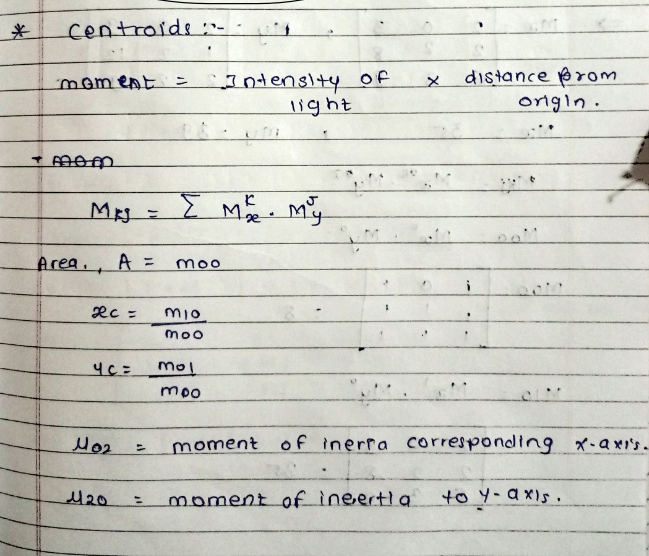 * Centroids :-
moment = Intensity of light x distance from origin.
M_kj = Σ M_x^k . M_y^j
Area., A = m00
xc = m10 / m00
yc = m01 / m00
μ02 = moment of inerra corresponding x-axis.
μ20 = moment of ineertia to y-axis.